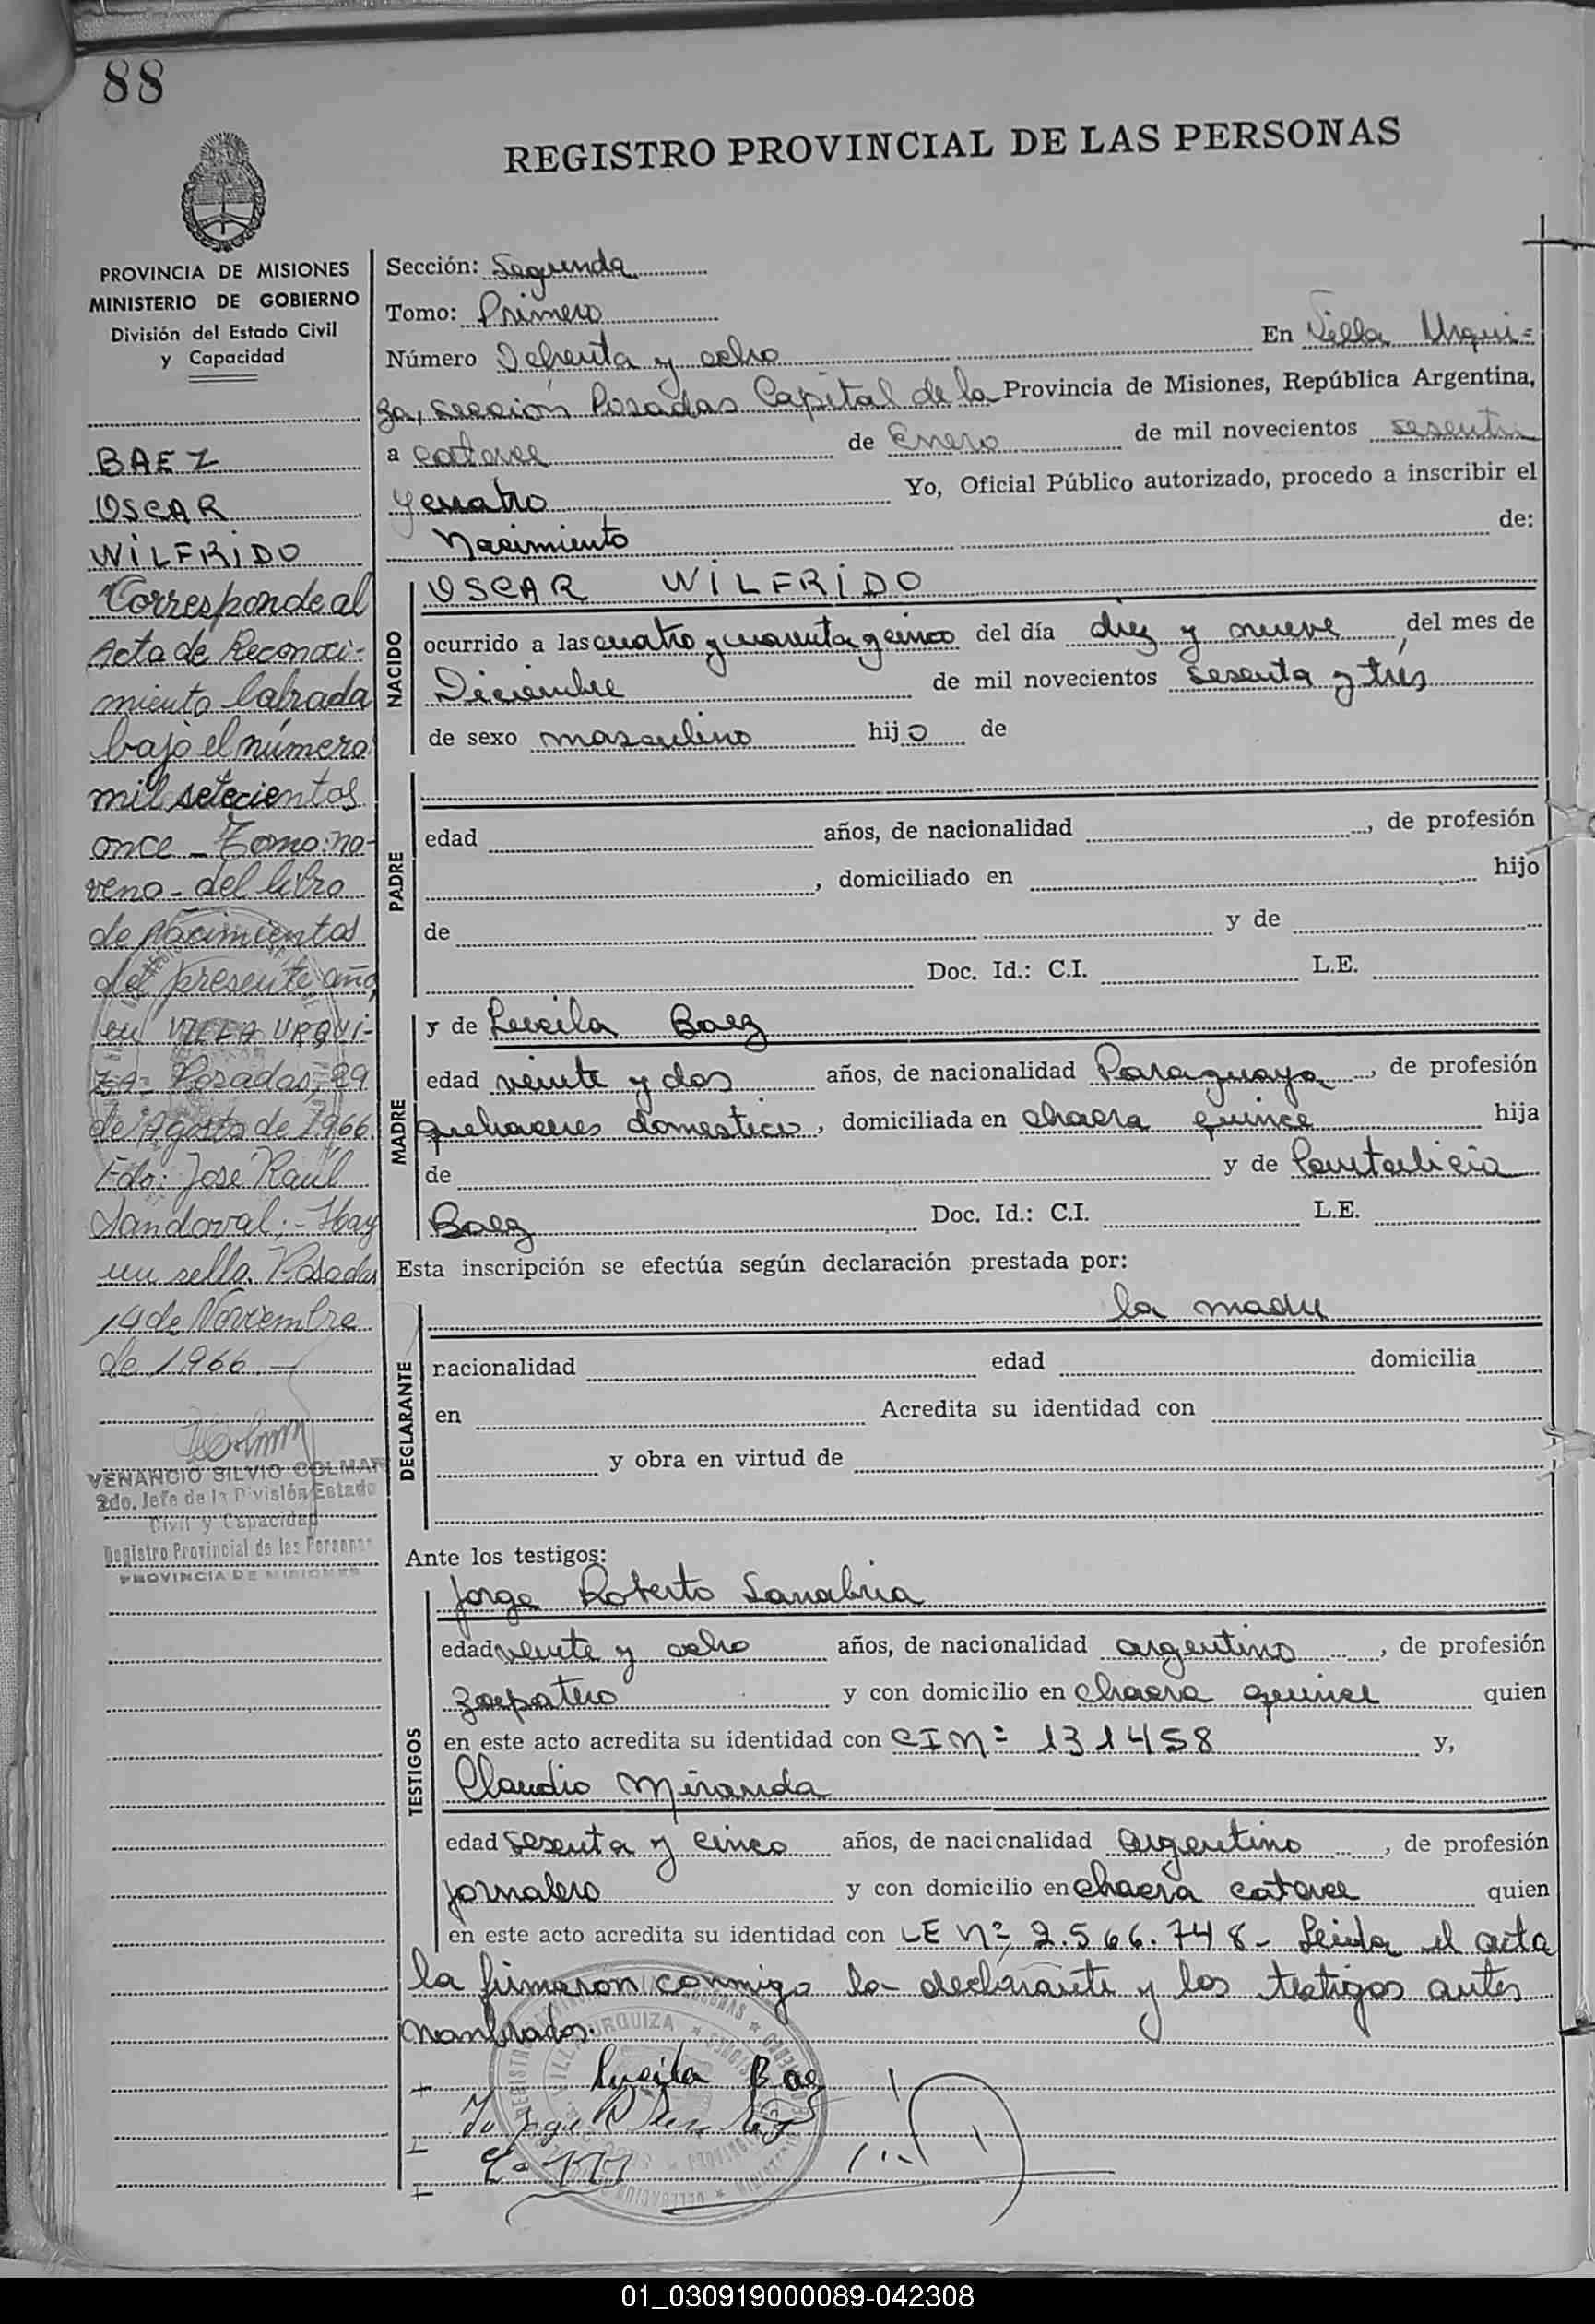 88
REGISTRO PROVINCIAL DE LAS PERSONAS
PROVINCIA DE MISIONES
MINISTERIO DE GOBIERNO
División del Estado Civil
y Capacidad
BAEZ
OSCAR
WILFRIDO
Corresponde al
Acta de Reconoci-
miento labrada
bajo el número
mil setecientos
once - Tomo: no-
veno - del libro
de nacimientos
del presente año,
en VILLA URQUI-
ZA - Posadas, 29
de Agosto de 1966.
Fdo: José Raúl
Sandoval; - Hay
un sello. Posadas
14 de Noviembre
de 1966 -
VENANCIO SILVIO COLMAN
2do. Jefe de la División Estado
Civil y Capacidad
Registro Provincial de las Personas
PROVINCIA DE MISIONES
Sección: Segunda
Tomo: Primero
Número Ochenta y ocho En Villa Urqui=
za, sección Posadas Capital de la Provincia de Misiones, República Argentina,
a catorce de Enero de mil novecientos sesenta
y cuatro Yo, Oficial Público autorizado, procedo a inscribir el
Nacimiento de:
NACIDO
OSCAR WILFRIDO
ocurrido a las cuatro y cuarenta y cinco del día diez y nueve, del mes de
Diciembre de mil novecientos sesenta y tres
de sexo masculino hijo de
PADRE
edad años, de nacionalidad , de profesión
, domiciliado en hijo
de y de
Doc. Id.: C.I. L.E.
MADRE
y de Luceila Baez
edad veinte y dos años, de nacionalidad Paraguaya, de profesión
quehaceres domestico, domiciliada en chacra quince hija
de y de
Baez Doc. Id.: C.I. L.E.
Esta inscripción se efectúa según declaración prestada por:
DECLARANTE
la madre
nacionalidad edad domicilia
en Acredita su identidad con
y obra en virtud de
Ante los testigos:
TESTIGOS
Jorge Roberto Sanabria
edad veinte y ocho años, de nacionalidad argentino, de profesión
zapatero y con domicilio en chacra quince quien
en este acto acredita su identidad con CI Nº 131458 y,
Claudio Miranda
edad sesenta y cinco años, de nacionalidad argentino, de profesión
jornalero y con domicilio en chacra catorce quien
en este acto acredita su identidad con LE Nº 2.566.748 - Leida el acta
la firmaron conmigo la declarante y los testigos antes
nombrados.
Luceila Baez
01_030919000089-042308